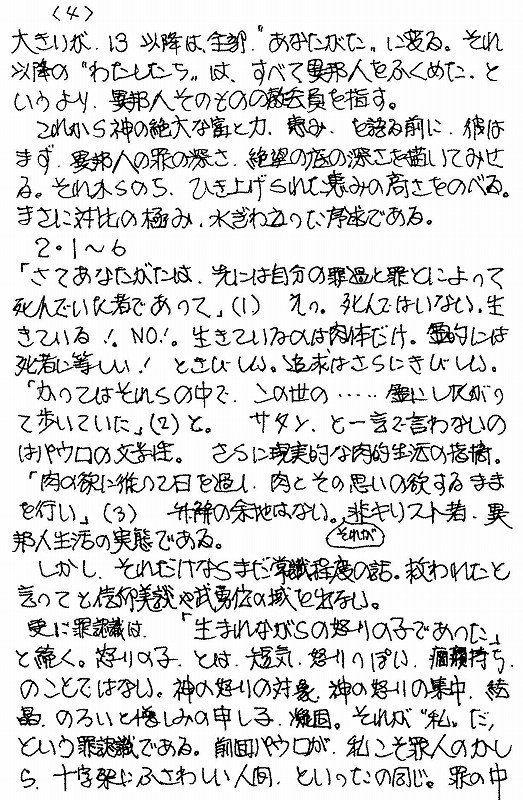 〈4〉
大きいが、13以降は、全部〝あなたがた〟に変る。それ
以降の〝わたしたち〟は、すべて異邦人をふくめた、と
いうより、異邦人そのものの教会員を指す。
これから神の絶大な富と力、恵み、を語る前に、彼は
まず、異邦人の罪の深さ、絶望の底の深さを描いてみせ
る。それからのち、ひき上げられた恵みの高さをのべる。
まさに対比の極み、水ぎわ立った序述である。
2・1～6
「さてあなたがたは、先には自分の罪過と罪とによって
死んでいた者であって」(1) えっ。死んではいない、生
きている!。NO!。生きているのは肉体だけ。霊的には
死者に等しい! ときびしい。追求はさらにきびしい。
「かつてはそれらの中で、この世の……霊にしたがっ
て歩いていた」(2)と。 サタン、と一言で言わないの
はパウロの文学性。 さらに現実的な肉的生活の指摘。
「肉の欲に従って日を過し、肉とその思いの欲するまま
を行い」(3) 弁解の余地はない。非キリスト者、異
邦人生活の実態である。
それが
しかし、それだけならまだ常識程度の話。救われたと
言っても信仰美談や武勇伝の域を出ない。
更に罪認識は、「生まれながらの怒りの子であった」
と続く。怒りの子、とは、短気、怒りっぽい、癇癪持ち、
のことではない。神の怒りの対象、神の怒りの集中、結
晶、のろいと憎しみの申し子、凝固。それが〝私〟だ、
という罪認識である。前回パウロが、私こそ罪人のかし
ら、十字架にふさわしい人間、といったの同じ。罪の中